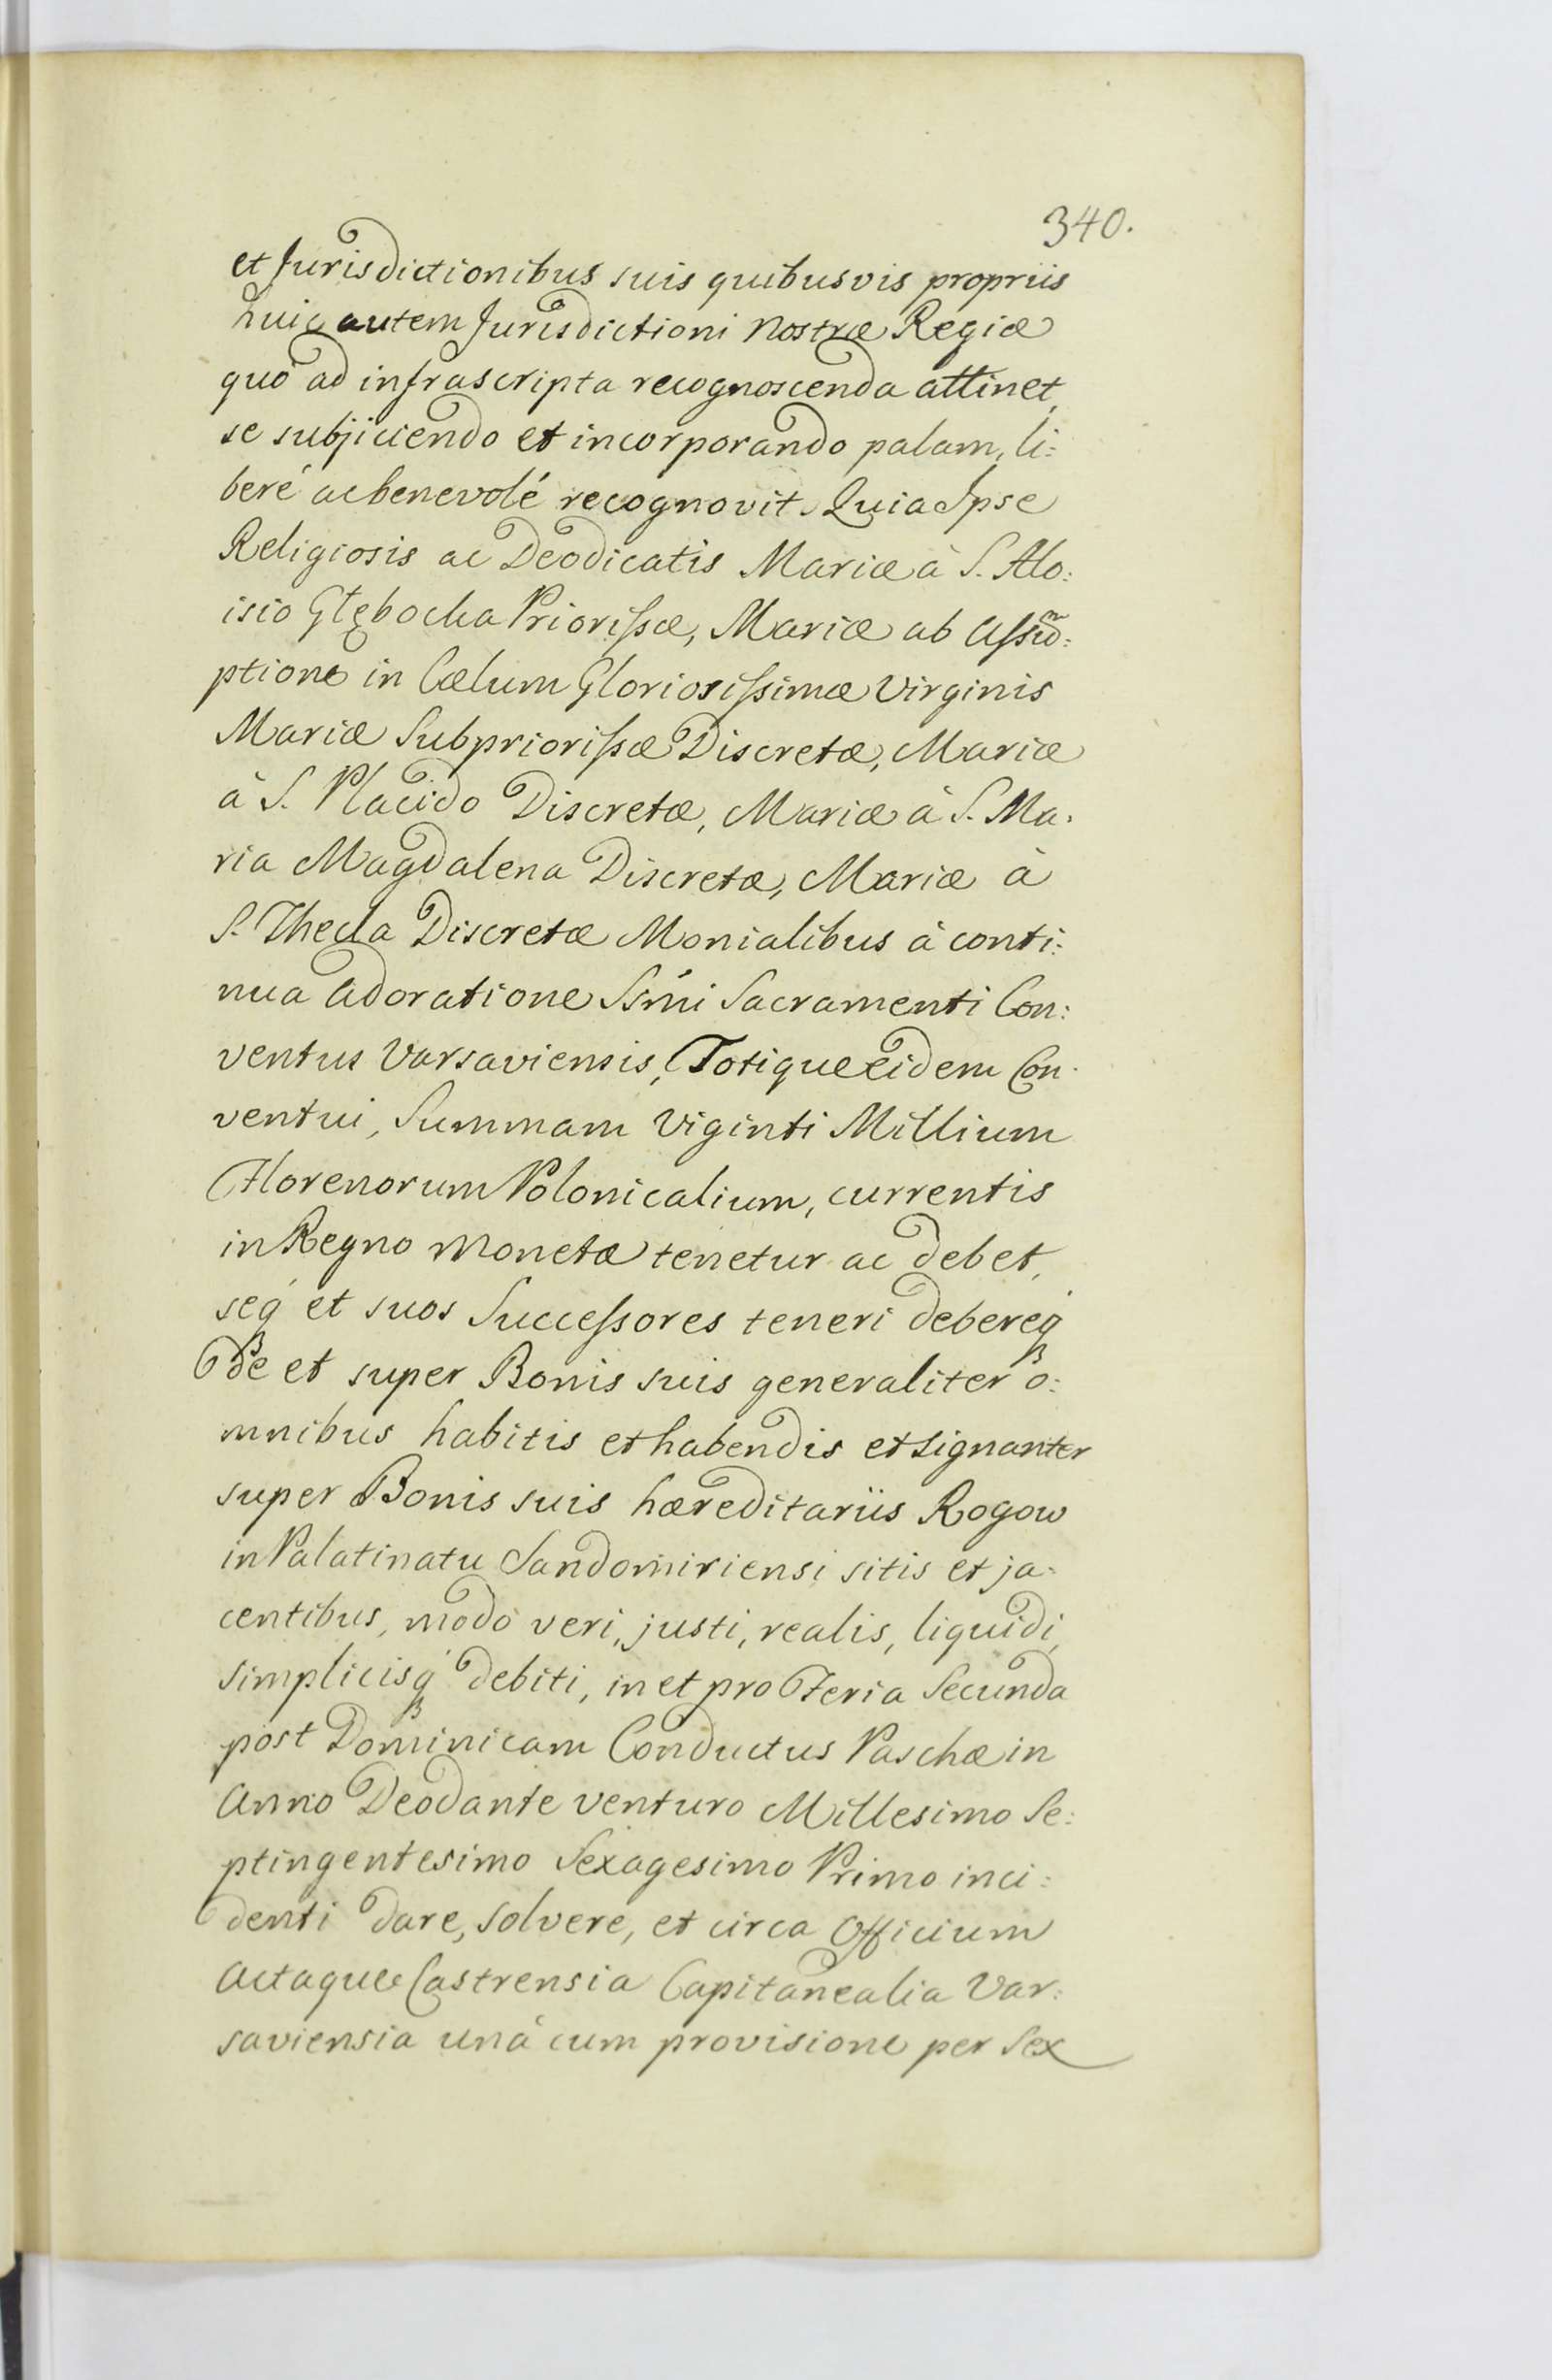 340.
et Jurisdictionibus suis quibusvis propriis
huic autem Jurisdictioni Nostræ Regiæ
quò ad infrascripta recognoscenda attinet,
se subjiciendo et incorporando palam, li:
berè ac benevolé recognovit. Quia Ipse
Religiosis ac Deodicatis Mariæ à S. Alo:
isio Głębocka Priorissæ, Mariæ ab Assũ:
ptione in Cælum Gloriosissimæ Virginis
Mariæ Subpriorissæ Discretæ, Mariæ
à S. Placido Discretæ, Mariæ à S. Ma:
ria Magdalena Discretæ, Mariæ à
S. Thecla Discretæ Monialibus à conti:
nua Adoratione Ssm̃i Sacramenti Con:
ventus Varsaviensis, Totique eidem Con:
ventui, Summam Viginti Millium
Florenorum Polonicalium, currentis
in Regno Monetæ tenetur ac debet,
seq́ et suos Successores teneri debereq́
de et super Bonis suis generaliter o:
mnibus habitis et habendis et signanter
super Bonis suis hæreditariis Rogow
in Palatinatu Sandomiriensi sitis et ja:
centibus, modo veri, justi, realis, liquidi,
simplicisq́ debiti, in et pro Feria Secunda
post Dominicam Conductus Paschæ in
Anno Deo dante venturo Millesimo Se:
ptingentesimo Sexagesimo Primo inci:
denti dare, solvere, et circa Officium
Actaque Castrensia Capitanealia Var:
saviensia unà cum provisione per Sex